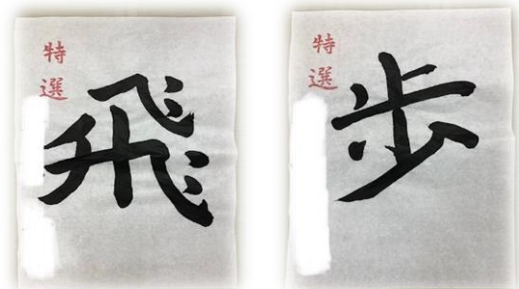 特選
飛
特選
歩